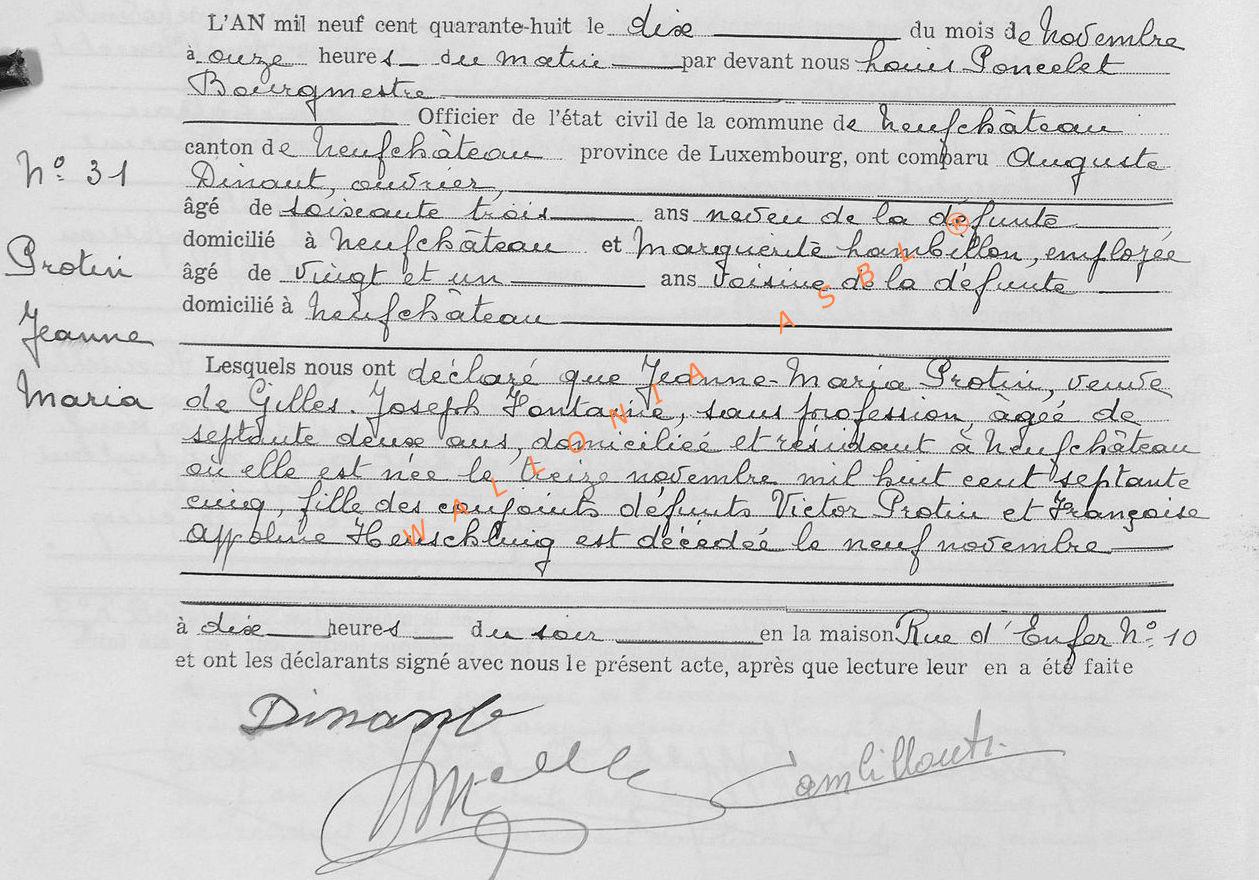 L'AN mil neuf cent quarante-huit le dix du mois de Novembre
à onze heures du matin par devant nous Louis Poncelet
Bourgmestre
Officier de l'état civil de la commune de Neufchâteau
N° 31
canton de Neufchâteau province de Luxembourg, ont comparu Auguste
Dinant, ouvrier,
âgé de soixante trois ans neveu de la défunte
Protin
domicilié à Neufchâteau et Marguerite Lambillon, employée
âgé de vingt et un ans voisine de la défunte
domicilié à Neufchâteau
Jeanne
Lesquels nous ont déclaré que Jeanne-Maria Protin, veuve
Maria
de Gilles-Joseph Fontaine, sans profession, âgée de
septante deux ans, domiciliée et résidant à Neufchâteau
où elle est née le treize novembre mil huit cent septante
cinq, fille des conjoints défunts Victor Protin et Françoise
Appoline Henschling est décédée le neuf novembre
à dix heures du soir en la maison Rue d'Enfer N° 10
et ont les déclarants signé avec nous le présent acte, après que lecture leur en a été faite
Dinant
WALLONIA ASBL ®